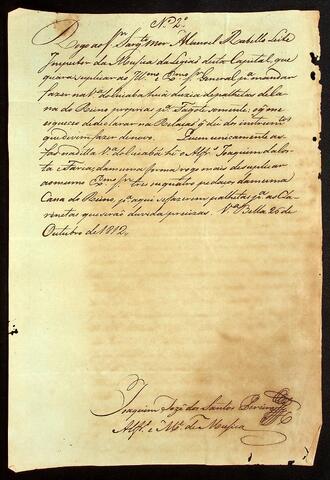 N.º 2º
Rogo ao Sr. Sargto. mor Manoel Rabello Leite
Inspector da Musica da Legião desta Capital, que
queira suplicar ao Illmo. e Exmo. Sr. General pa. mandar
fazer na Va. do Cuiabá huá duzia de palhetas de ca
na do Reino proprias pa. Fagote somente; o q me
esqueceo de declarar na Relação q dei do instrumtos.
que devem fazer de novo. Quem unicamente as
fas na dita Va. do Cuiabá he o Alfs. Joaquim da Cos
ta Farca; da mesma forma rogo mais de suplicar
ao mesmo Exmo. Sr. tres ou quatro pedaços da mesma
Cana do Reino pa. aqui se fazerem palhetas pa. as Cla
rinetas que será de duvida precizas. Va. Bella 26 de
Outubro de 1812.
Joaquim Jozé dos Santos
Alfs. e Me. de Musica